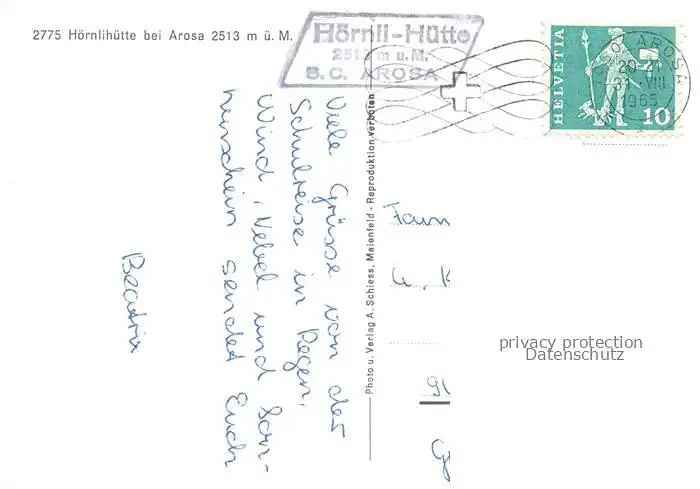 2775 Hörnlihütte bei Arosa 2513 m ü. M.
Hörnli-Hütte
2513 m ü. M.
S. C. AROSA
HELVETIA
10
AROSA
20-21
31. VIII
1965
Viele Grüsse von der
Schulreise in Regen,
Wind, Nebel und Son-
nenschein sendet Euch
Beatrix
Photo u. Verlag A. Schiess, Maienfeld - Reproduktion verboten
Fam
privacy protection
Datenschutz